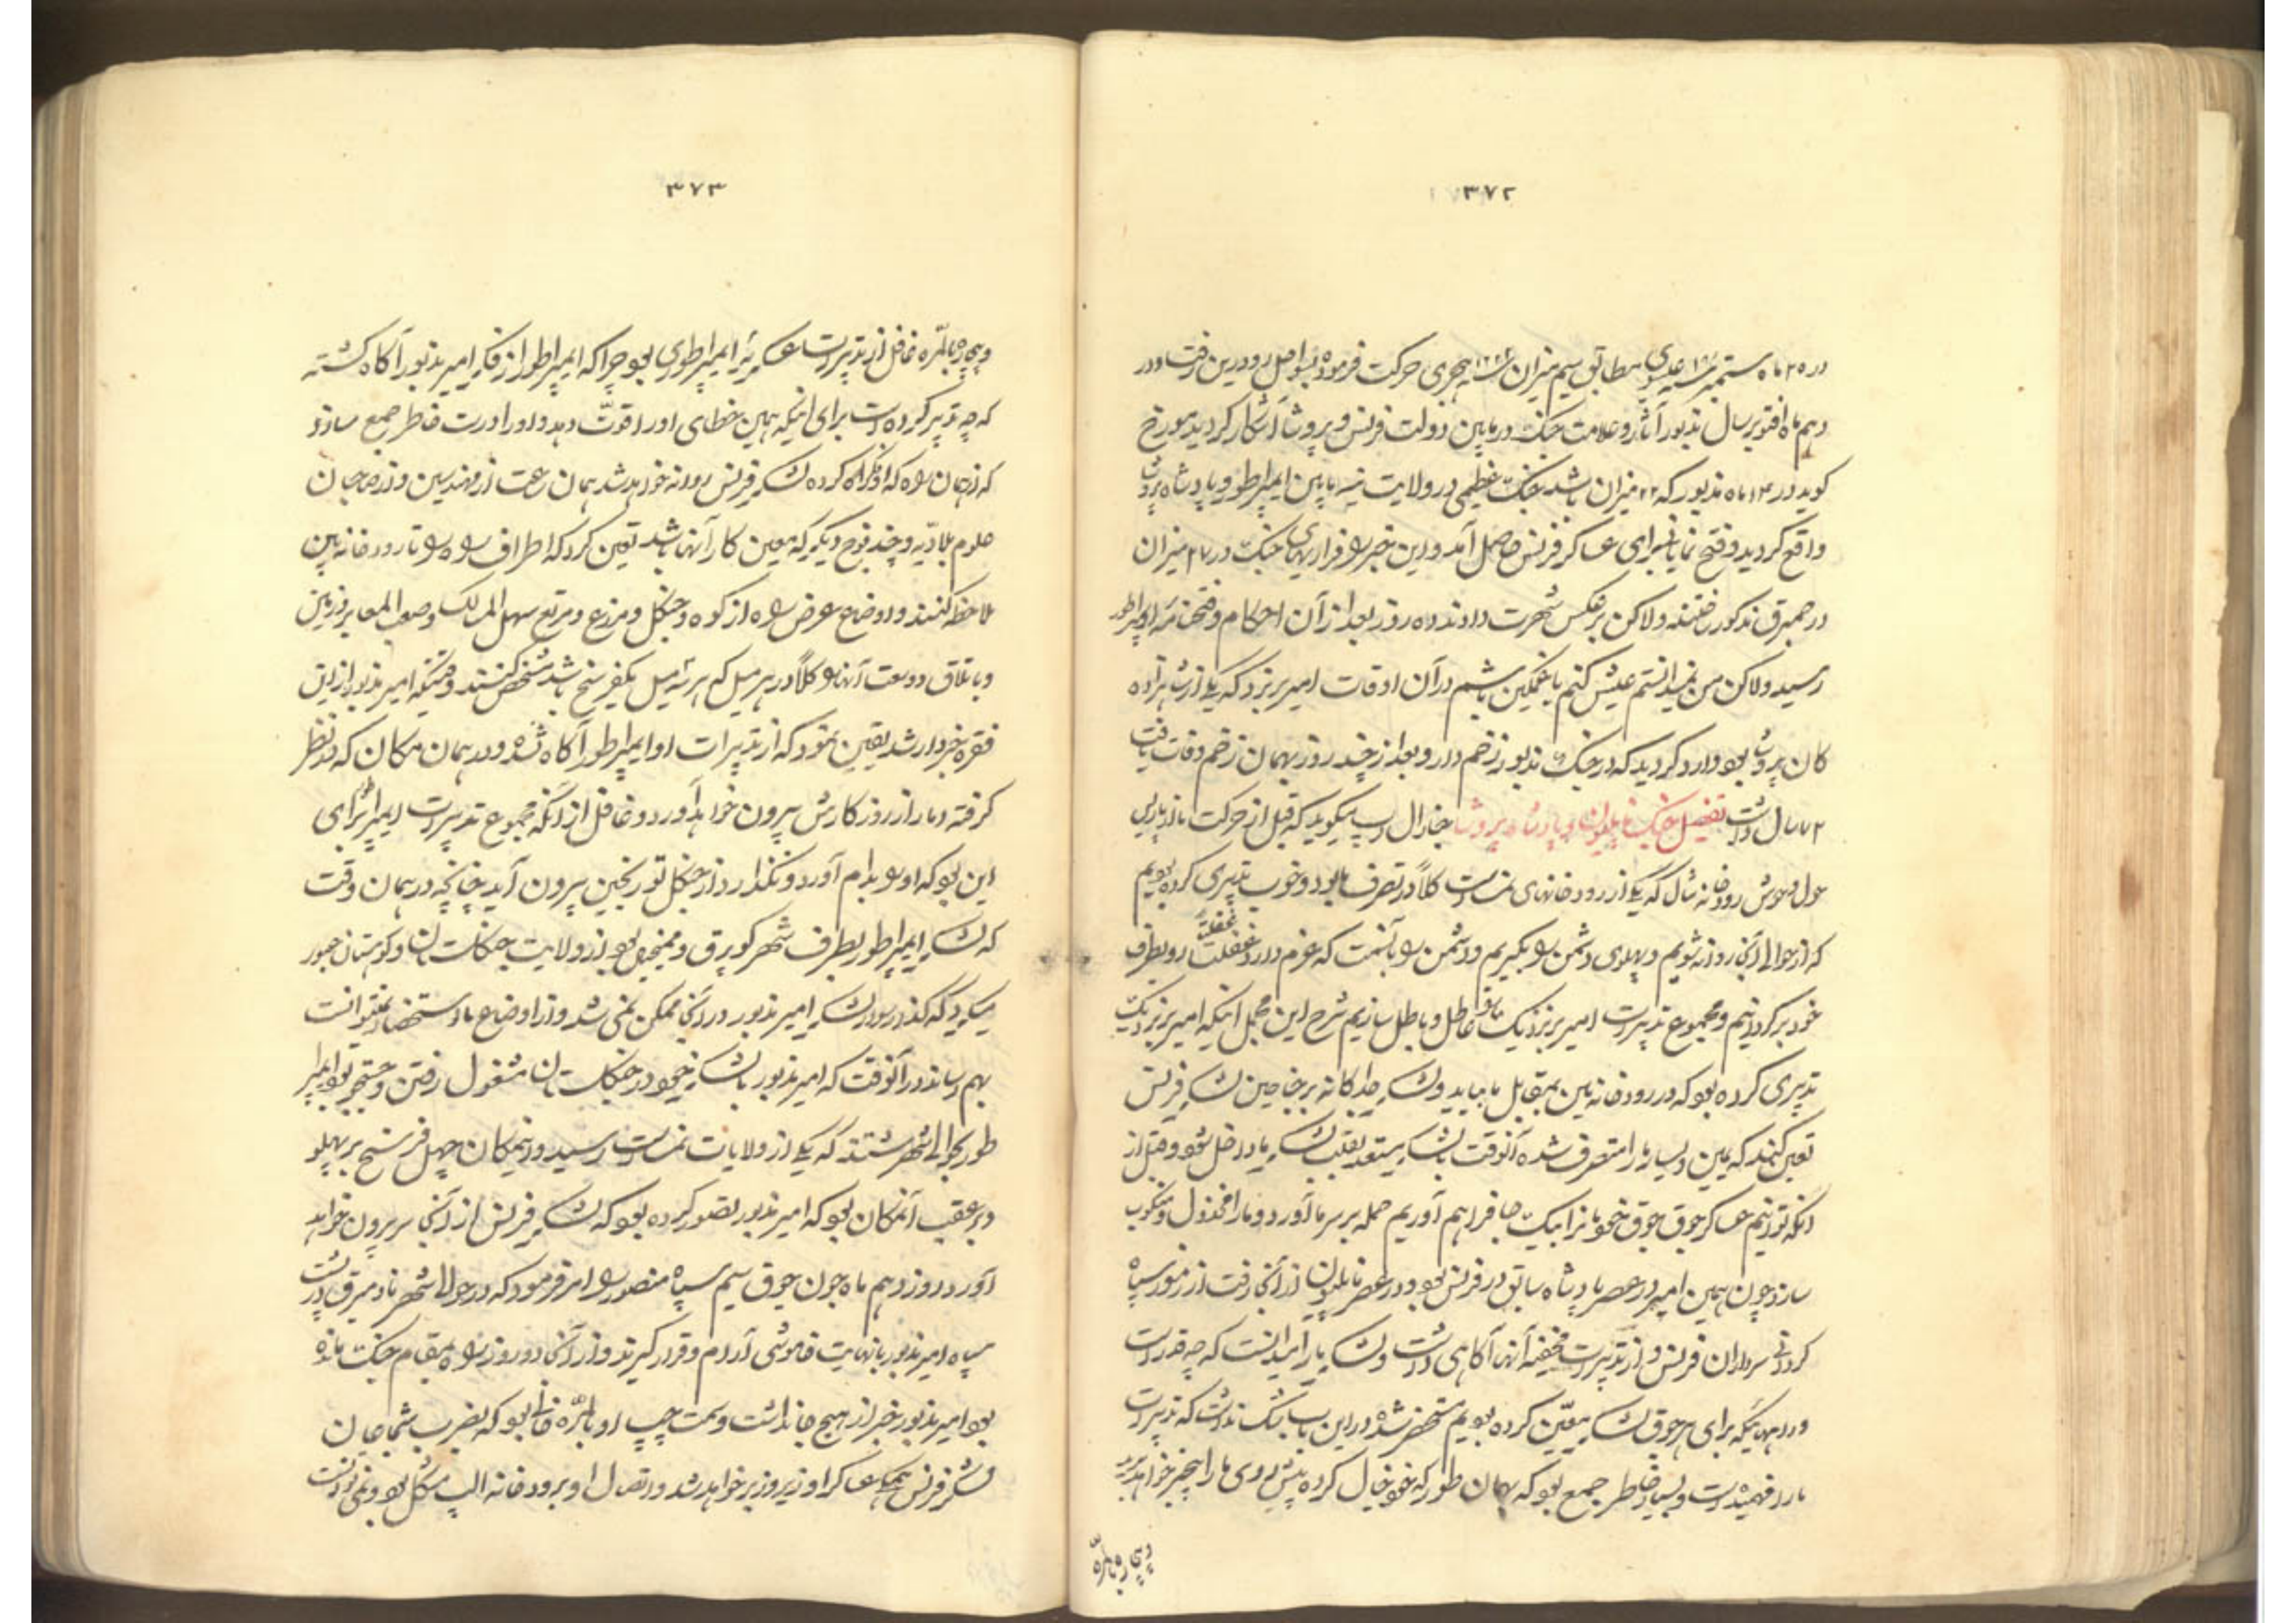 ۳۷۲
در ۲۵ ماه ستمبر سنه عیسوی مطابق سیم میزان سنه هجری حرکت فرموده بسواحل رود رین رفت و در
دهم ماه اقتوبر سال مذبور آثار و علامت جنگ در مابین دولت فرنس و پروشا آشکار گردید مورخ
گوید در ۱۴ ماه مذبور که ۲۲ میزان باشد جنگ عظیمی در ولایت مابین ایمپراطور و پادشاه پروشا
واقع گردید و فتح نمایانی برای عساکر فرنس حاصل آمد و این خبر را فراریهای جنگ در ۲۷ میزان
در همبرق مذکور ساختند ولاکن برعکس شهرت دادند ده روز بعد از آن احکام و فتحنامه ایمپراطور
رسید ولاکن من نمیدانستم عیش کنم یا غمگین باشم در آن اوقات امیر برنزدک یکی از شاهزاده
کان پروشا بود وارد گردید که در جنگ مذبور زخم دار و بعد از چند روز بهمان زخم وفات یافت
۷۲ سال داشت تفصیل جنگ ناپلیون و پادشاه پروشا جنارال رپ میگوید که قبل از حرکت ما از پاریس
حول و حوش رودخانه سال که یکی از رودخانهای نمساست کلاً در تصرف ما بود و خوب تدبیری کرده بودیم
که از حوالی آنجا روانه شویم و پهلوی دشمن را بگیریم و دشمن را بآنسمت که عزم دارد غفلت رو بطرف
خود برگردانیم و مجموع تدبیرات امیر برنزدیک را عاطل و باطل سازیم شرح این مجمل اینکه امیر برنزدیک
تدبیری کرده بود که در رودخانه بمقابل ما بیاید و لشکر جداگانه بر جناحین لشکر فرنس
تعین کنند که یمین و یسار ما را متصرف شده آنوقت با لشکر مستعد بقلب لشکر ما داخل شود و قبل از
آنکه توانیم عساکر جوق جوق خودمانرا بیک جا فراهم آوریم حمله بر سر ما آورد و ما را مخذول و منکوب
سازد چون همین امیر در عصر پادشاه سابق در فرنس بود و در عصر ناپلیون از آنجا رفت از رموز سپاه
کردانی سرداران فرنس و از تدبیرات مخفیه آنها آگاهی داشت و لشکر ما را میدانست که چه قدر است
و راههائیکه برای هر جوق لشکر معین کرده بودیم مستحضر شده در این باب شک نداشت که تدبیرات
ما را فهمیده است و بسیار خاطر جمع بود که بهمان طور که خود خیال کرده پیش روی ما را بیخبر خواهد برید
و بیچاره بالمره
۳۷۳
و بیچاره بالمره غافل از تدبیرات عسکریه ایمپراطوری بود چرا که ایمپراطور از فکر امیر مذبور آگاه گشته
که چه تدبیر کرده است برای اینکه همین خطای او را قوت دهد و او را درست خاطر جمع سازد
که از همان راه که او نگاه کرده لشکر فرنس روانه خواهد شد همان ساعت از مهندسین و از صاحبان
علوم بلادیه و چند فوج دیگر که معین کار آنها باشد تعین کرد که اطراف راه را تا رودخانه
ملاحظه کنند و اوضاع عرض راه از کوه و جنگل و مزرع و مرتع سهل المسالک و صعب المعابر و زمین
و باتلاق و وسعت آنها را کلاً در هر میل که هر سه میل یکفرسخ باشد مشخص کنند وقتیکه امیر مذبور از این
فقره خبردار شد یقین نمود که از تدبیرات او ایمپراطور آگاه نشده و در همان مکان که در نظر
گرفته دمار از روزگارش بیرون خواهد آورد و غافل از آنکه مجموع تدبیرات ایمپراطور برای
این بود که او را بدام آورد و نگذارد از جنگل بیرون آید چنانچه در همان وقت
که لشکر ایمپراطور بطرف شهر کوبرق و بود از ولایت جنگلستان و کوهستان عبور
میکرد که گذر برای لشکر امیر مذبور در آنجا ممکن نمی شد و از اوضاع ما استحضار نمیتوانست
بهم رساند در آنوقت که امیر مذبور با لشکر خود در جنگلستان مشغول رفتن و جستجو بود ایمپرا
طور بحوالی شهر که یکی از ولایات نمساست رسید و از مکان چهل فرسخ بر پهلو
و بر عقب آنمکان بود که امیر مذبور تصور کرده بود که لشکر فرنس از آنجا سر بیرون خواهد
آورد در روز دهم ماه جون جوق سیم سپاه منصور را امر فرمود که در حوالی شهر در پشت
سپاه امیر مذبور بانهایت خاموشی آرام و قرار گیرند و از آنجا دو روز راه بمقام جنگ مانده
بود امیر مذبور خبر از هیچ جا نداشت و سمت چپ او بالمره خالی بود که بضرب
لشکر فرنس همه عساکر او زیر و زبر خواهد شد و اتصال او برودخانه الب مشکل بود و نمی دانست